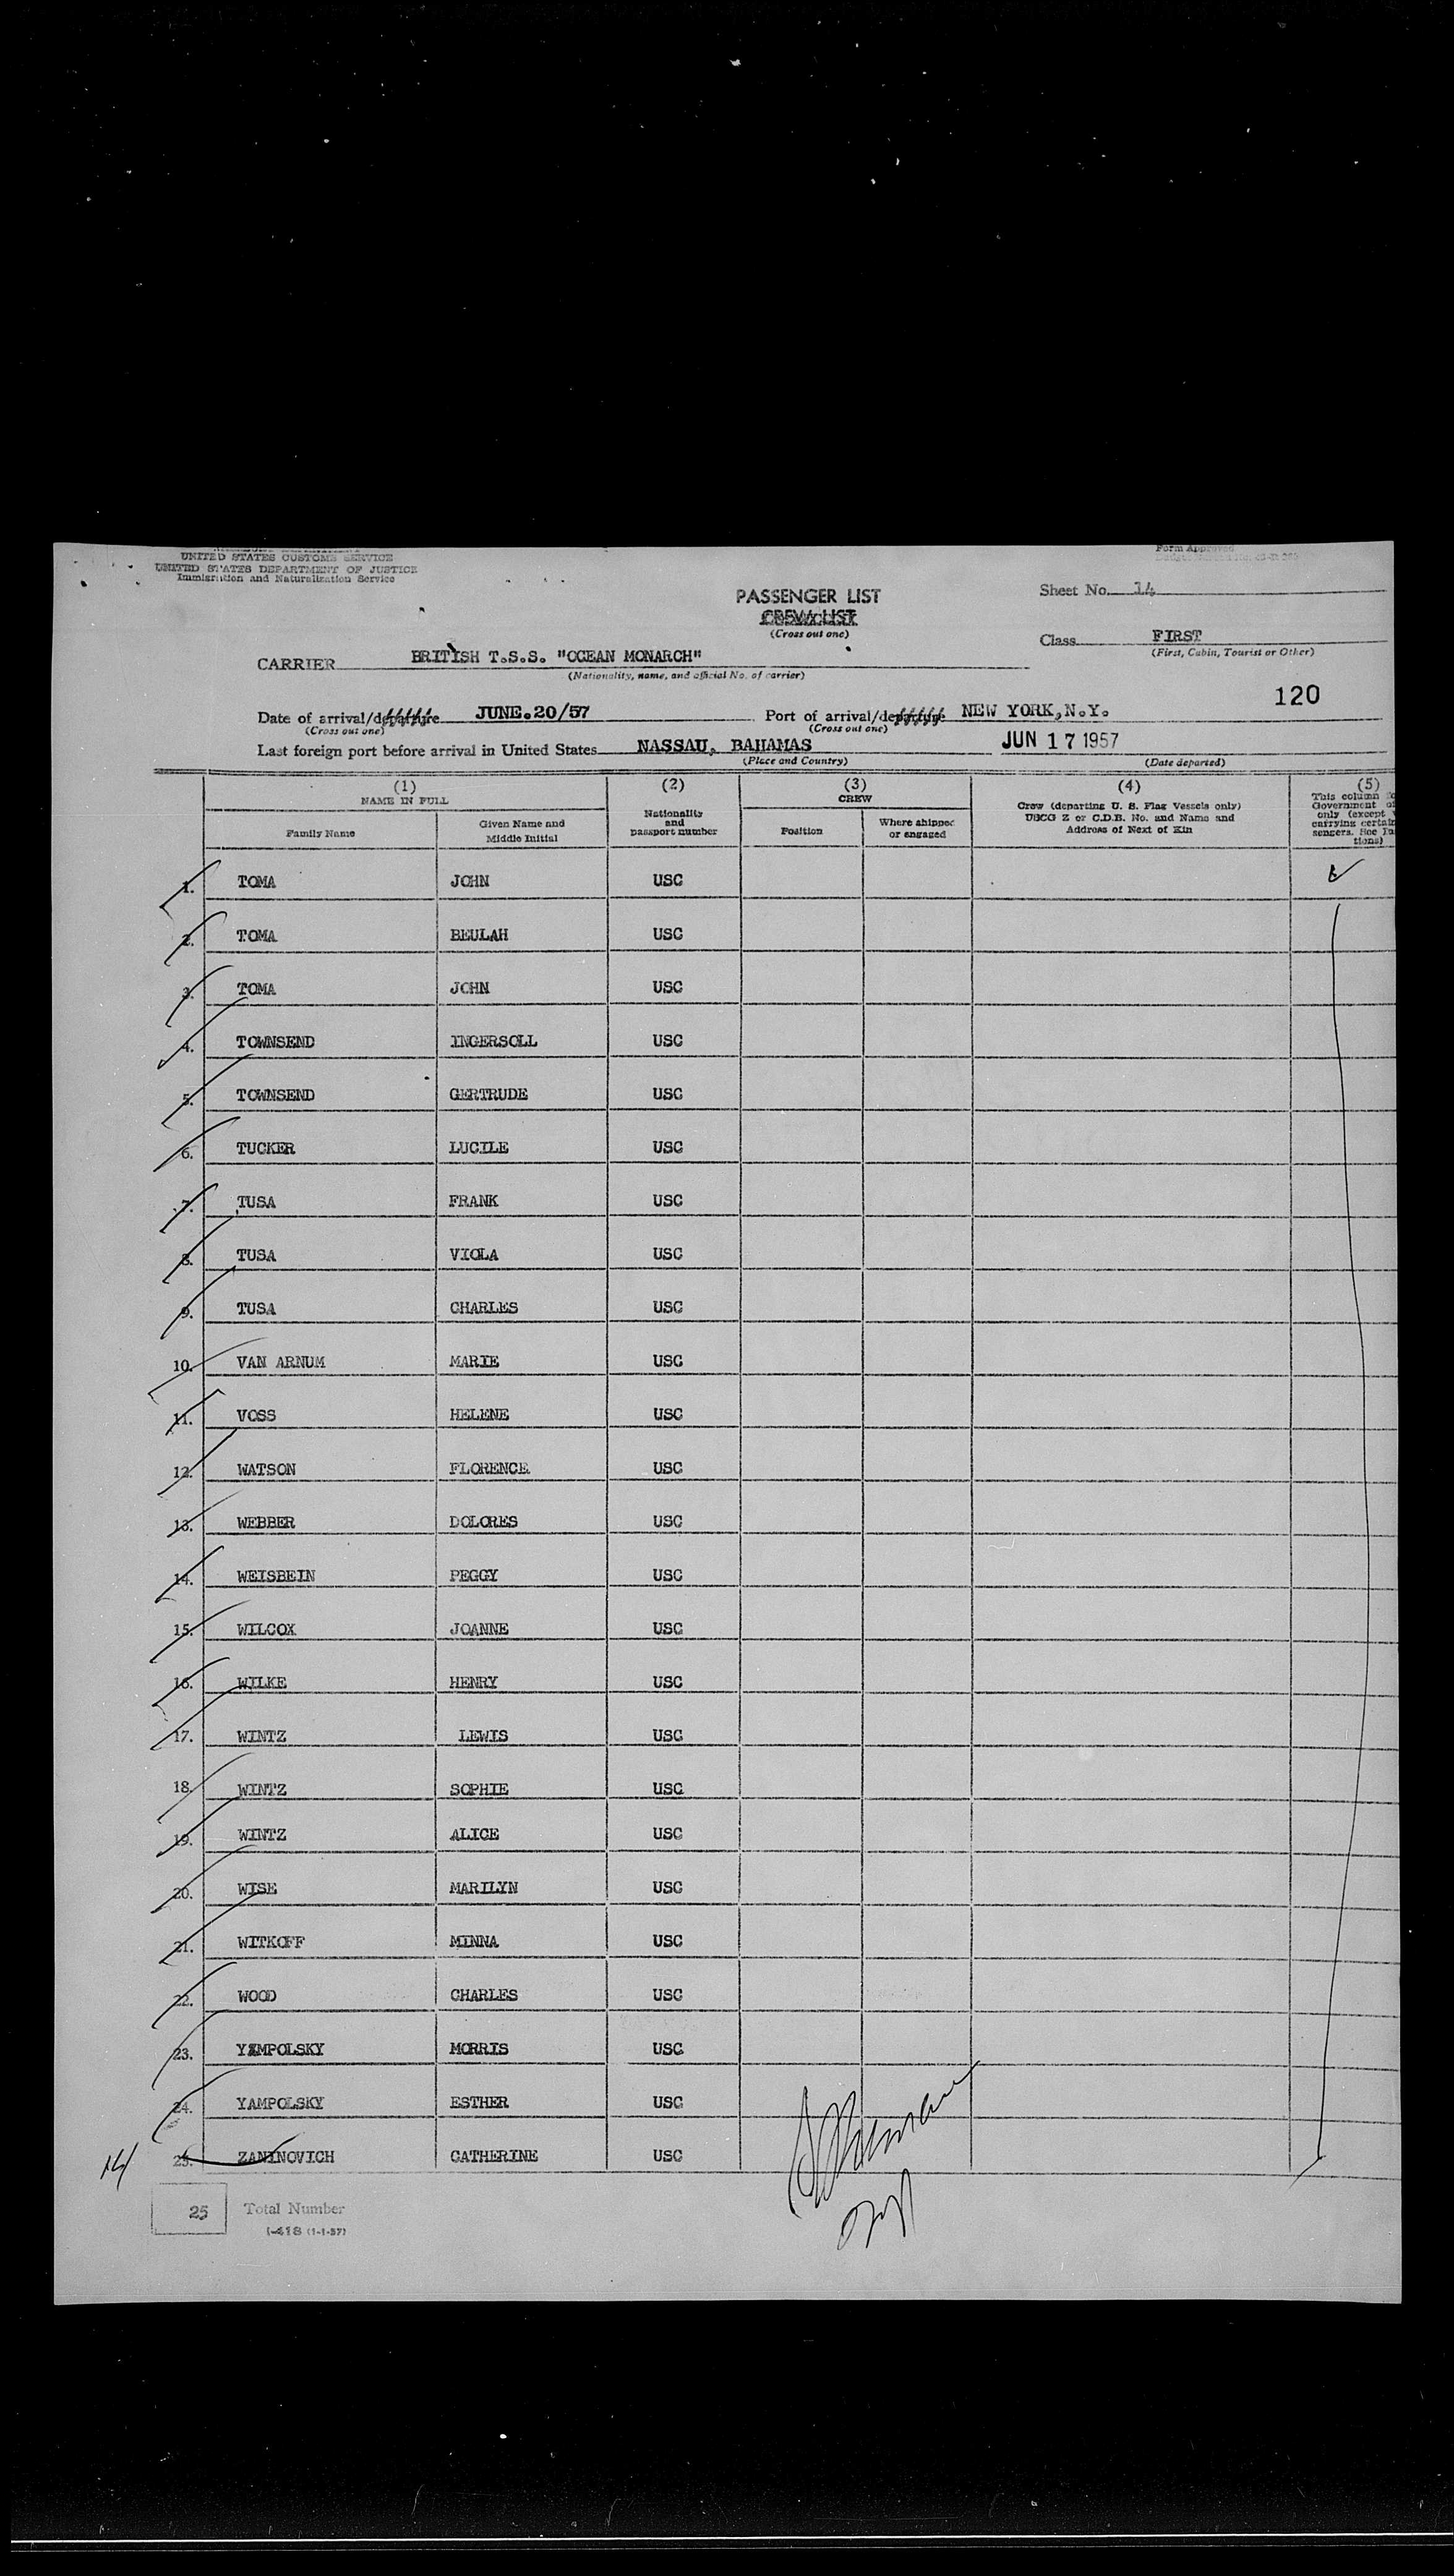 UNITED STATES CUSTOMS SERVICE
UNITED STATES DEPARTMENT OF JUSTICE
Immigration and Naturalization Service
Form Approved
Sheet No. 14
PASSENGER LIST
CREW LIST
(Cross out one)
Class FIRST
(First, Cabin, Tourist or Other)
CARRIER BRITISH T.S.S. "OCEAN MONARCH"
(Nationality, name, and official No. of carrier)
120
Date of arrival/departure JUNE.20/57 Port of arrival/departure NEW YORK,N.Y.
(Cross out one) (Cross out one)
Last foreign port before arrival in United States NASSAU, BAHAMAS JUN 17 1957
(Place and Country) (Date departed)
(1) (2) (3) (4) (5)
NAME IN FULL CREW
Family Name Given Name and Middle Initial Nationality and passport number Position Where shipped or engaged Crew (departing U. S. Flag Vessels only) USCG Z or C.D.B. No. and Name and Address of Next of Kin This column Government only (except carrying certain sengers. See tions)
1. TOMA JOHN USC
2. TOMA BEULAH USC
3. TOMA JOHN USC
4. TOWNSEND INGERSOLL USC
5. TOWNSEND GERTRUDE USC
6. TUCKER LUCILE USC
7. TUSA FRANK USC
8. TUSA VIOLA USC
9. TUSA CHARLES USC
10. VAN ARNUM MARIE USC
11. VOSS HELENE USC
12. WATSON FLORENCE USC
13. WEBBER DOLORES USC
14. WEISBEIN PEGGY USC
15. WILCOX JOANNE USC
16. WILKE HENRY USC
17. WINTZ LEWIS USC
18. WINTZ SOPHIE USC
19. WINTZ ALICE USC
20. WISE MARILYN USC
21. WITKOFF MINNA USC
22. WOOD CHARLES USC
23. YAMPOLSKY MORRIS USC
24. YAMPOLSKY ESTHER USC
25. ZANINOVICH CATHERINE USC
14
25 Total Number
I-418 (1-1-57)